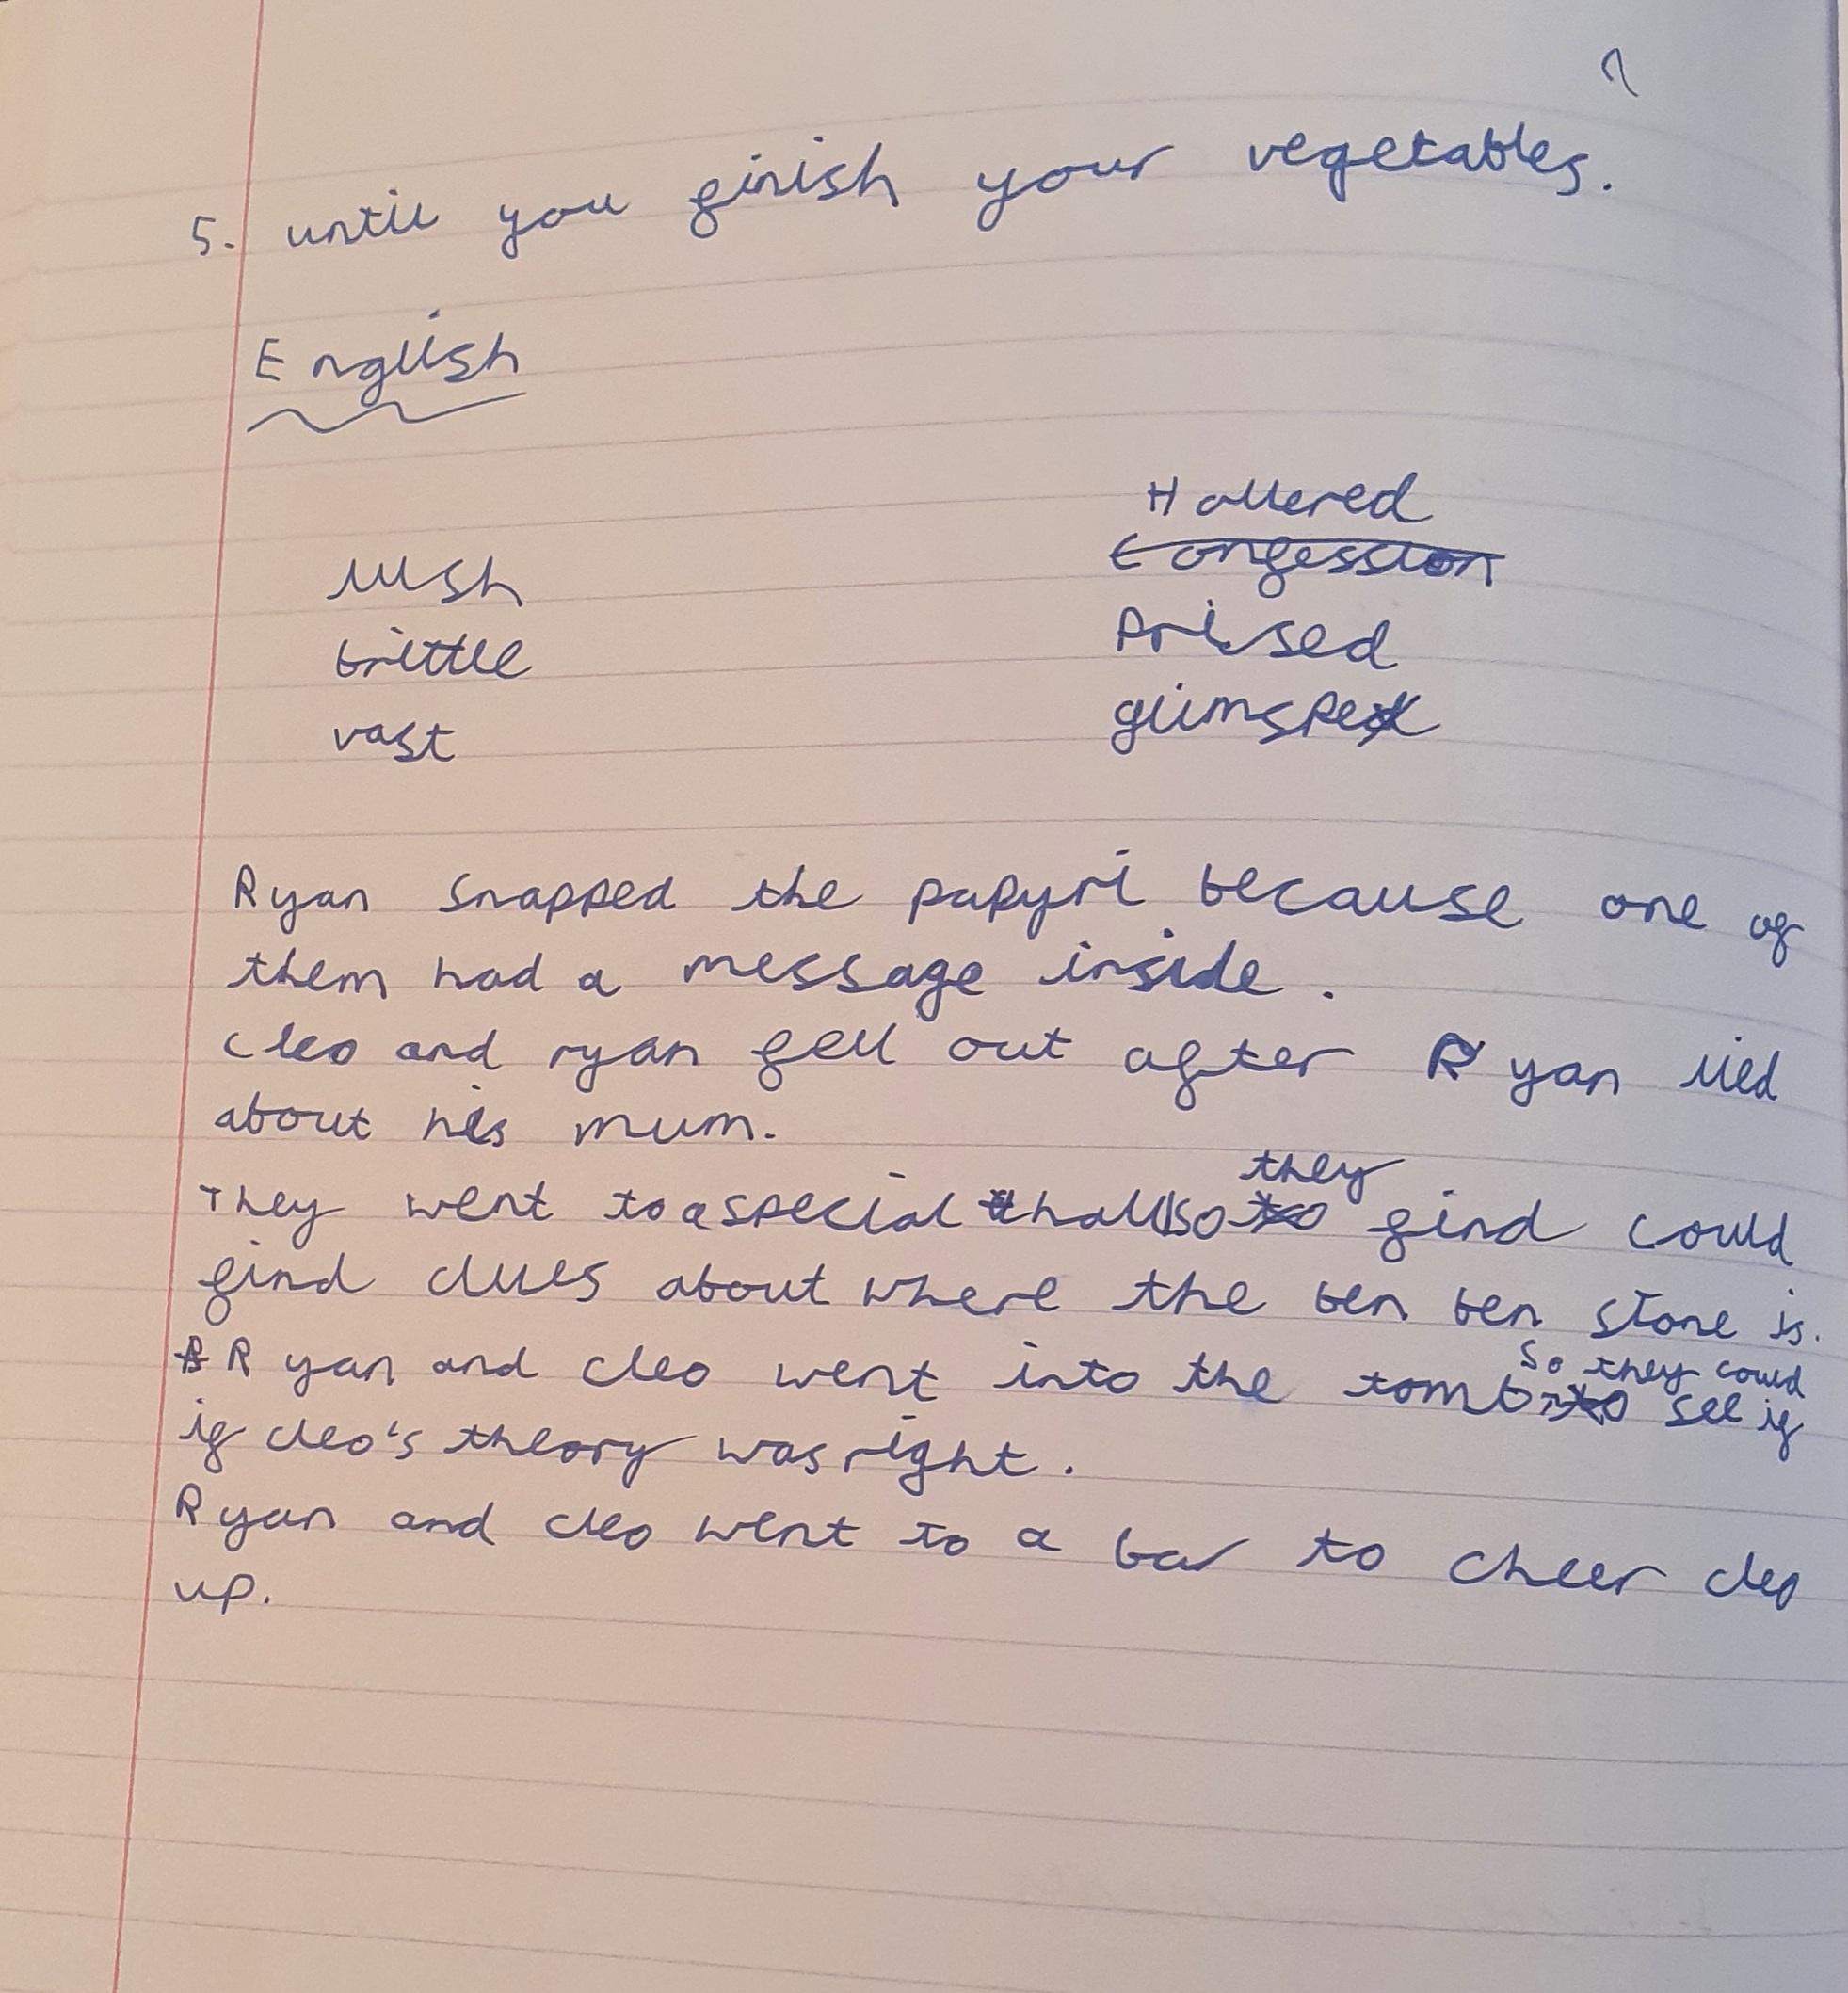 5. until you finish your vegetables.
English
Hollered
Confession
lush
brittle
Prised
vast
glimspe
Ryan snapped the papyri because one of
them had a message inside.
cleo and ryan fell out after Ryan lied
about his mum.
they
They went to a special hall so to find could
find clues about where the ben ben stone is.
so they could
Ryan and cleo went into the tomb to see if
if cleo's theory was right.
Ryan and cleo went to a bar to cheer cleo
up.